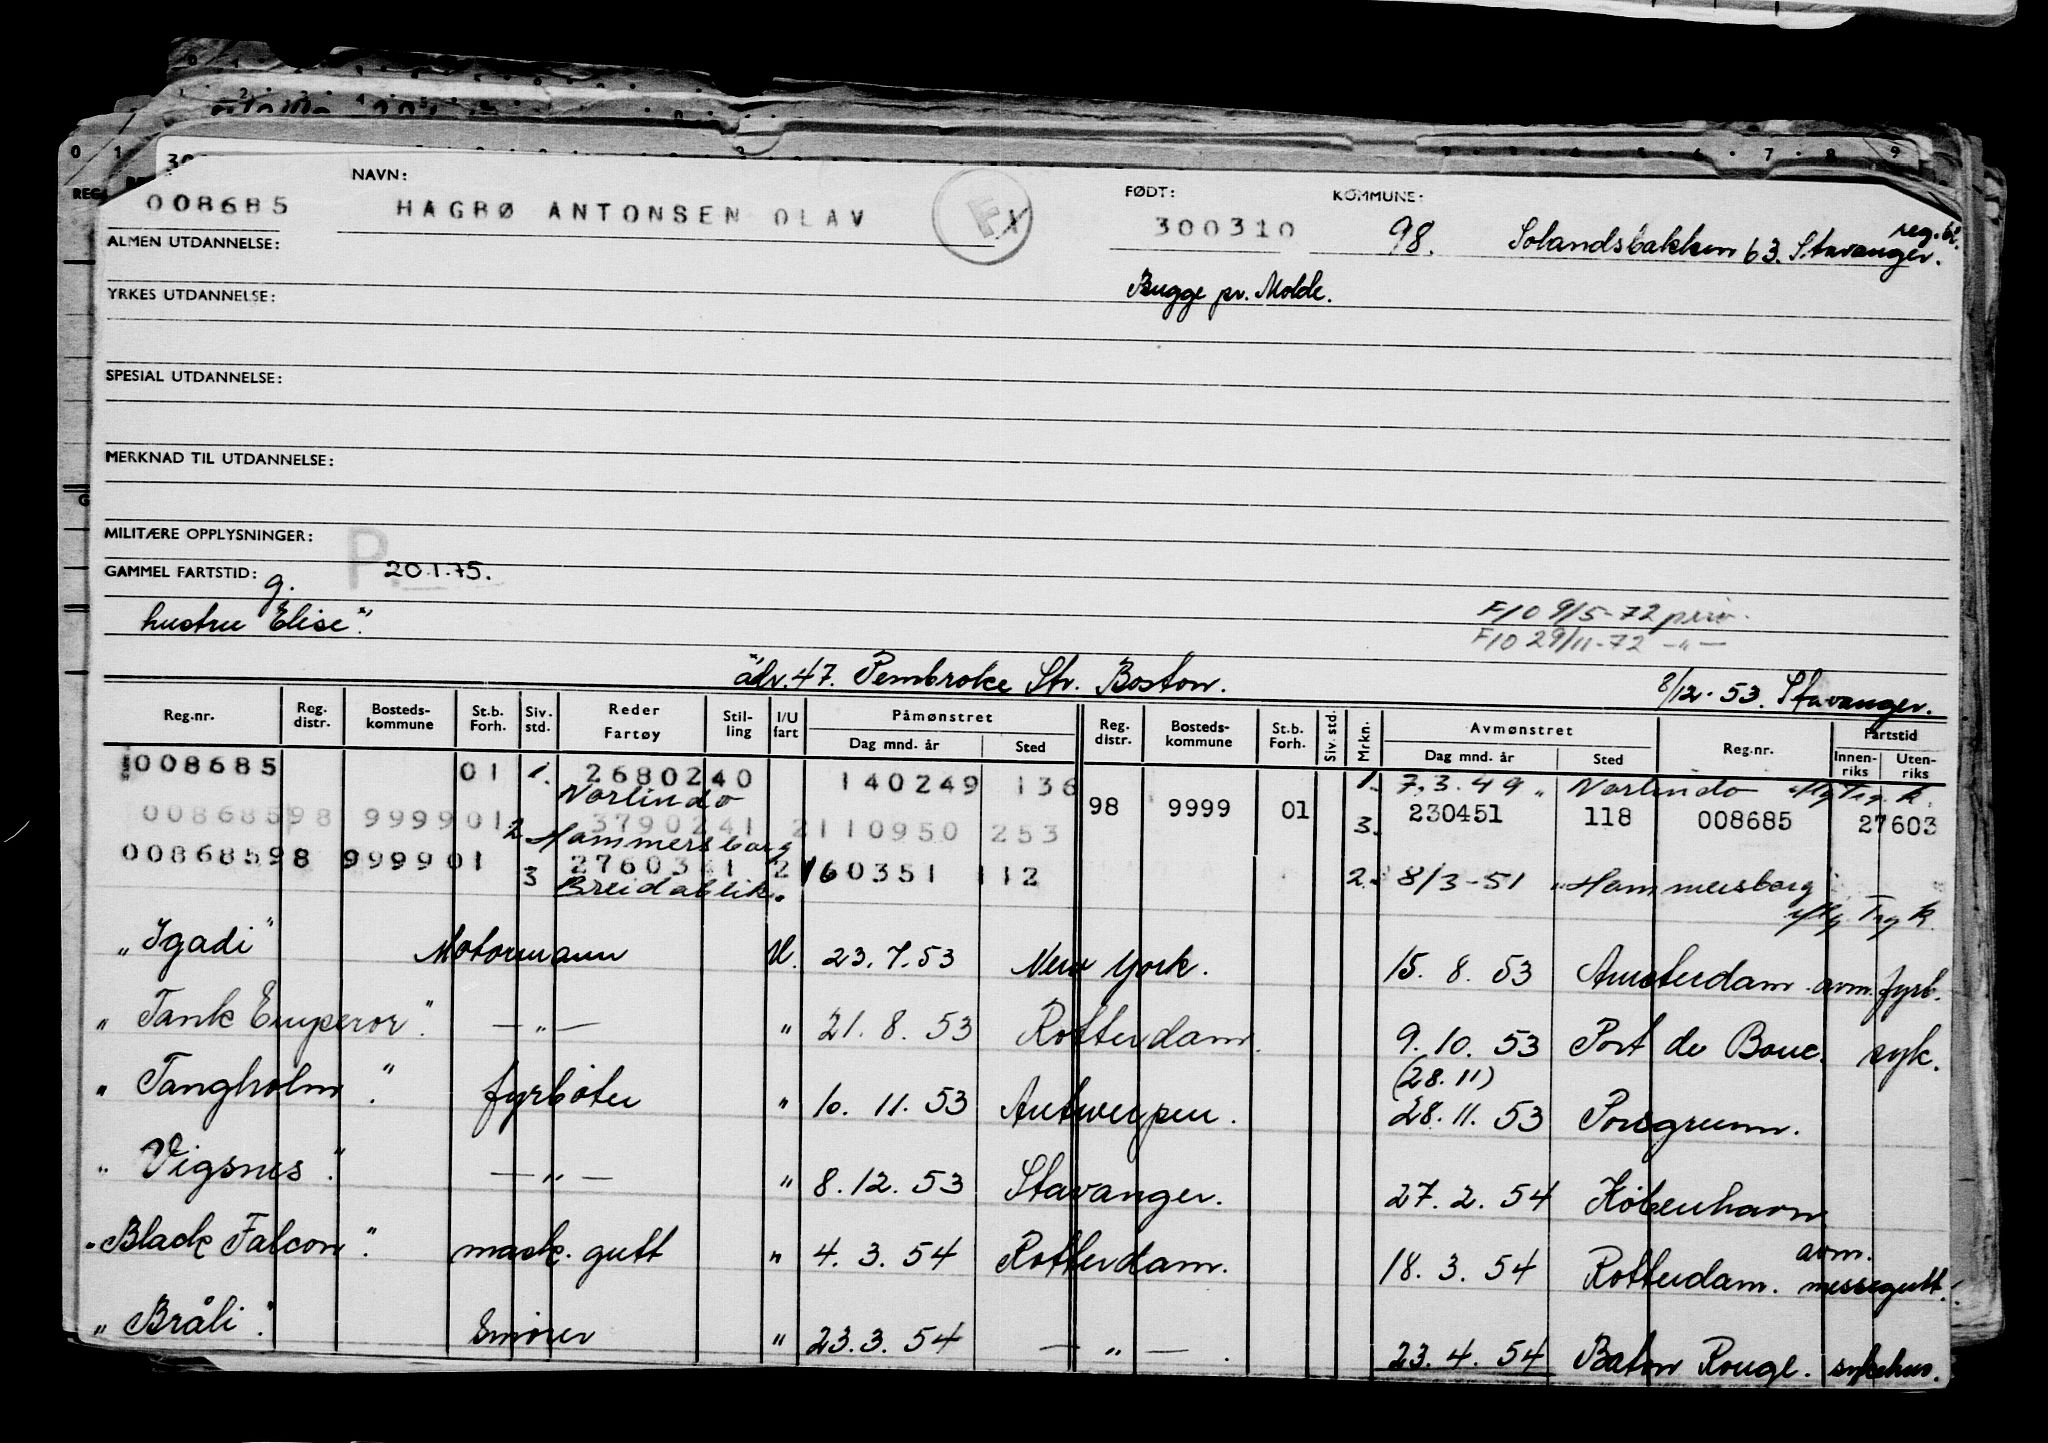 NAVN: FØDT: KOMMUNE:
008685 HAGBØ ANTONSEN OLAV FX 300310 98. Solandsbakken 63. Stavanger. reg. bl.
ALMEN UTDANNELSE:
Bugge pr. Molde.
YRKES UTDANNELSE:
SPESIAL UTDANNELSE:
MERKNAD TIL UTDANNELSE:
MILITÆRE OPPLYSNINGER:
GAMMEL FARTSTID: g. P. 20.1.75.
hustru "Elise".
F10 9/5-72
F10 29/11-72 -"-
adr. 47. Pembroke Str. Boston. 8/12-53. Stavanger.
Reg.nr. Reg. distr. Bosteds-kommune St.b. Forh. Siv. std. Reder Fartøy Stil-ling I/U fart Påmønstret Dag mnd. år Sted Reg. distr. Bosteds-kommune St.b. Forh. Siv. std. Mrkn. Avmønstret Dag mnd. år Sted Reg.nr. Fartstid Innen-riks Uten-riks
008685 01 1. 2680240 140249 136 1. 7.3.49 " Norlindo
Norlindo 98 9999 01 3. 230451 118 008685 27603
008685 98 9999 01 2. 3790241 2 110950 253
Hammersborg
008685 98 9999 01 3 2760341 2 160351 112 2. 8/3-51 " Hammersborg
Breidablik.
"Igadi" Motormann U. 23.7.53 New York. 15.8.53 Amsterdam. avm. fyrb.
"Tank Emperor". -"- " 21.8.53 Rotterdam. 9.10.53 Port de Bouc. syk.
(28.11)
"Tangholm". fyrbøter " 10.11.53 Antwerpen. 28.11.53 Porsgrunn.
"Vigsnes". -"- " 8.12.53 Stavanger. 27.2.54 København
"Black Falcon". mask. gutt " 4.3.54 Rotterdam. 18.3.54 Rotterdam. avm. messegutt.
"Bråli". Smører " 23.3.54 -"-. 23.4.54 Baton Rouge. sykehus.